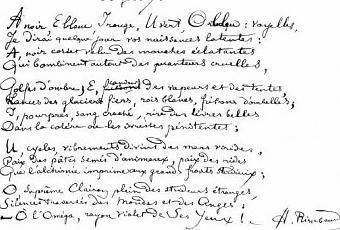 A noir, E blanc, I rouge, U vert, O bleu : voyelles,
Je dirai quelque jour vos naissances latentes :
A, noir corset velu des mouches éclatantes
Qui bombinent autour des puanteurs cruelles,
Golfes d'ombre ; E, candeurs des vapeurs et des tentes,
Lances des glaciers fiers, rois blancs, frissons d'ombelles ;
I, pourpres, sang craché, rire des lèvres belles
Dans la colère ou les ivresses pénitentes ;
U, cycles, vibrements divins des mers virides,
Paix des pâtis semés d'animaux, paix des rides
Que l'alchimie imprime aux grands fronts studieux ;
O, Suprême Clairon plein des strideurs étranges,
Silences traversés des Mondes et des Anges :
— O l'Oméga, rayon violet de Ses Yeux ! — A. Rimbaud